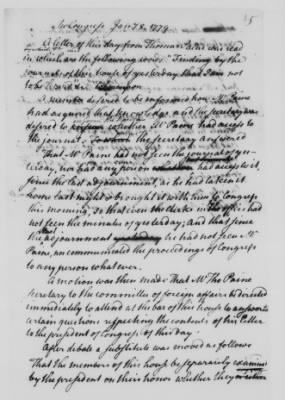 5
In Congress Jany 8. 1779
A letter of this day from Thomas Paine was read
in which are the following words "Finding by the
journals of this house of yesterday that I am not
to be heard &c
A member desired to be informed how Mr Paine
had acquired that knowledge, and the secretary was
desired to whether Mr Paine had access to
the journal. To the secretary answered
That Mr Paine had not seen the journal of yes-
terday, nor had any person had access to it,
since the last adjournment, as he had taken it
home last night & brought it with him to Congress
this morning, so that even the clerks in the office had
not seen the minutes of yesterday; and that since
the adjournment yesterday he had not seen Mr
Paine, nor communicated the proceedings of Congress
to any person whatever.
A motion was then made That Mr Tho Paine
Secretary to the committee of foreign affairs be directed
immediately to attend at the bar of this house to answer to
certain questions respecting the contents of his letter
to the president of Congress of this day.
After debate a substitute was moved as follows
That the members of this house be separately examined
by the president on their honor whether they